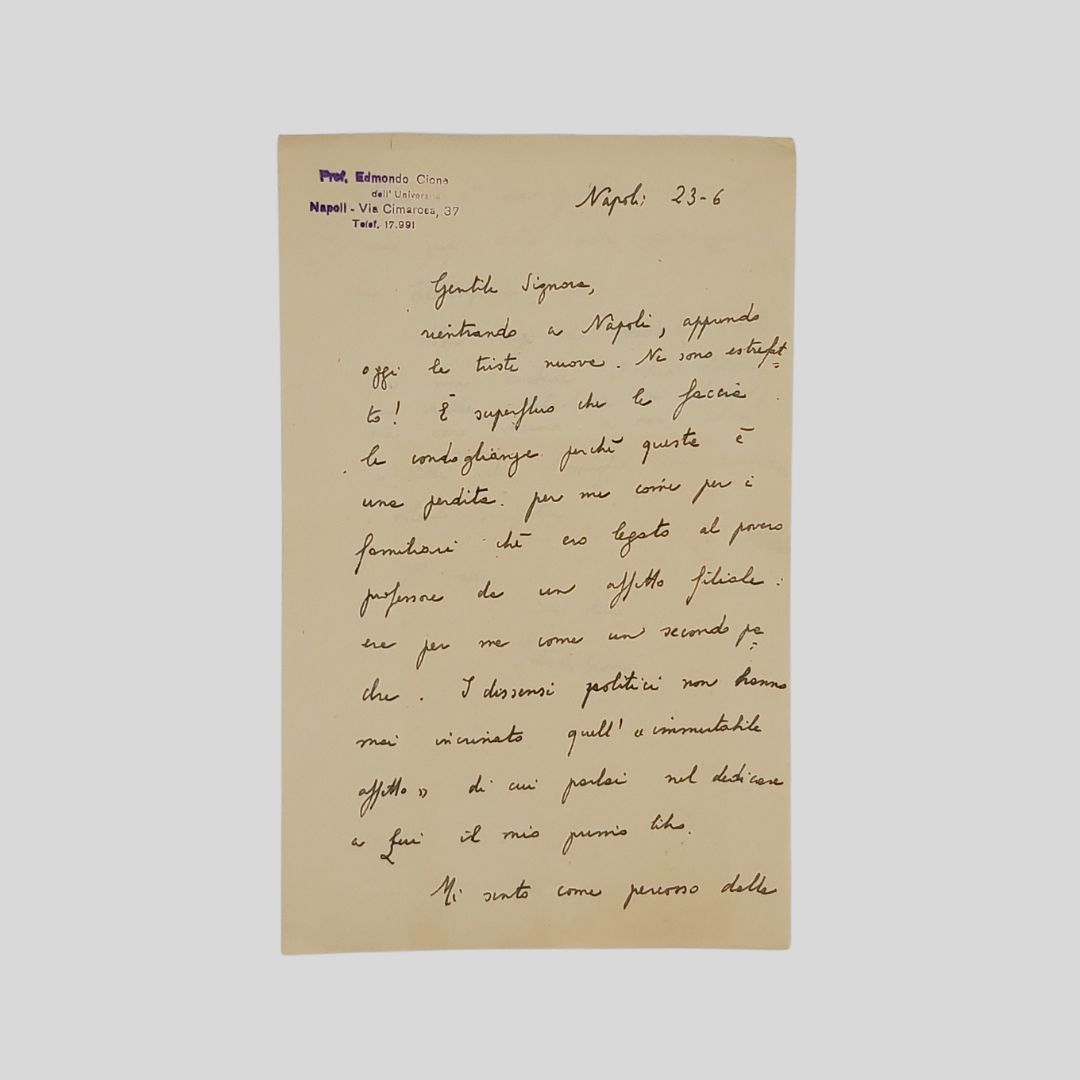 Prof. Edmondo Cione
dell' Università
Napoli - Via Cimarosa, 37
Telef. 17.991
Napoli 23-6
Gentile Signora,
rientrando a Napoli, apprendo
oggi la triste nuova. Ne sono estrefat
to! È superfluo che le faccia
le condoglianze perchè questa è
una perdita per me come per i
familiari chè ero legato al povero
professore da un affetto filiale:
era per me come un secondo pa
dre. I dissensi politici non hanno
mai incrinato quell' « immutabile
affetto » di cui parlai nel dedicare
a Lui il mio primo libro.
Mi sento come percosso dalla